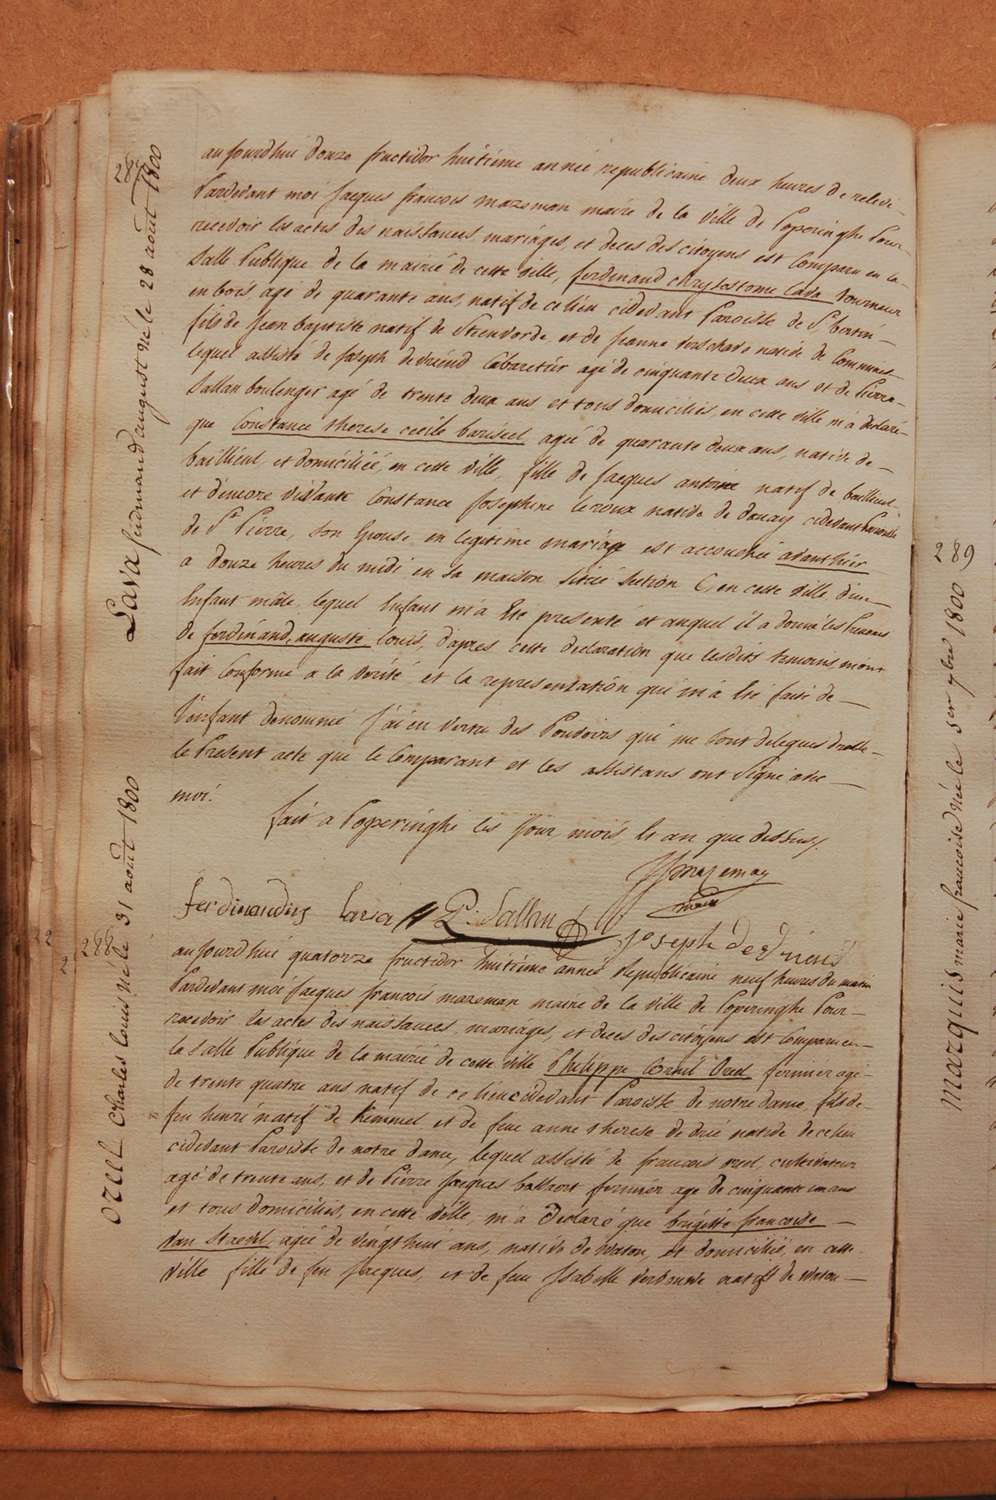 287
Lava ferdinand august Né le 28 août 1800
aujourdhui douze fructidor huitième année republicaine deux heures de relevé
Pardevant moi Jacques francois mazeman maire de la ville de Poperinghe Pour
recevoir les actes des naissances mariages, et deces des citoyens est Comparu en la
salle Publique de la mairie de cette ville, ferdinand chrysostome Lava tourneur
en bois agé de quarante ans, natif de ce lieu cidevant Paroisse de St bertin
fils de Jean baptiste natif de Steenvorde, et de Jeanne verschave native de Commines
lequel assisté de Joseph devriend Cabaretier agé de cinquante deux ans et de Pierre
Sallau boulenger agé de trente deux ans et tous domiciliés, en cette ville m'a declaré
que Constance therese cecile bariseel agée de quarante deux ans, native de
baillieul, et domiciliée, en cette ville, fille de Jacques antoine natif de bailleul
et d'encore vivante Constance Josephine leroux native de douay cidevant Paroisse
de St Pierre, son Epouse en legitime mariage est accouchée avanthier
a douze heures du midi en sa maison située Section C, en cette ville d'un
Enfant mâle, lequel Enfant m'a été presenté et auquel il a donné les Prenoms
de ferdinand, auguste louis, d'apres cette declaration que lesdits temoins, m'ont
fait Conforme a la verité et la representation qui m'a été faite de
l'enfant denommé J'ai en vertu des Pouvoirs qui me sont delegues dressé
le Present acte que le Comparant et les assistans ont signé avec
moi.
fait a Poperinghe les Jour, mois, et an que dessus,
JJ mazeman
maire
ferdinandus lava P: Sallau
Joseph Devriend
288
Oreel Charles louis Né le 31 août 1800
aujourdhui quatorze fructidor huitième année Republicaine neuf heures du matin
Pardevant moi Jacques francois mazeman maire de la ville de Poperinghe Pour
recevoir les actes des naissances mariages, et deces des citoyens est Comparu en
la salle Publique de la mairie de cette ville Philippe Corneil Oreel fermier agé
de trente quatre ans natif de ce lieu cidevant Paroisse de notre dame, fils de
feu henri natif de Kemmel et de feue anne therese de brie native de ce lieu
cidevant Paroisse de notre dame, lequel assisté de francois oreel, cultivateur
agé de trente ans, et de Pierre Jacques ballaert fermier agé de cinquante un ans
et tous domiciliés, en cette ville, m'a Declaré que brigitte francoise
Van Staepel, agée de vingt huit ans, native de watou, et domiciliée, en cette
ville fille de feu Jacques, et de feue Isabelle natifs de watou
289
Marquis marie francoise Née le 5er 7bre 1800